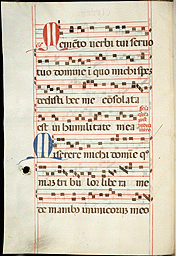 Memento verbi tui servo
tuo domine i quo michi spe
dedisti hec me cōsolata
est in humilitate mea
Miserere michi domine q
tribulor libera me
de manibus inimicorum meo